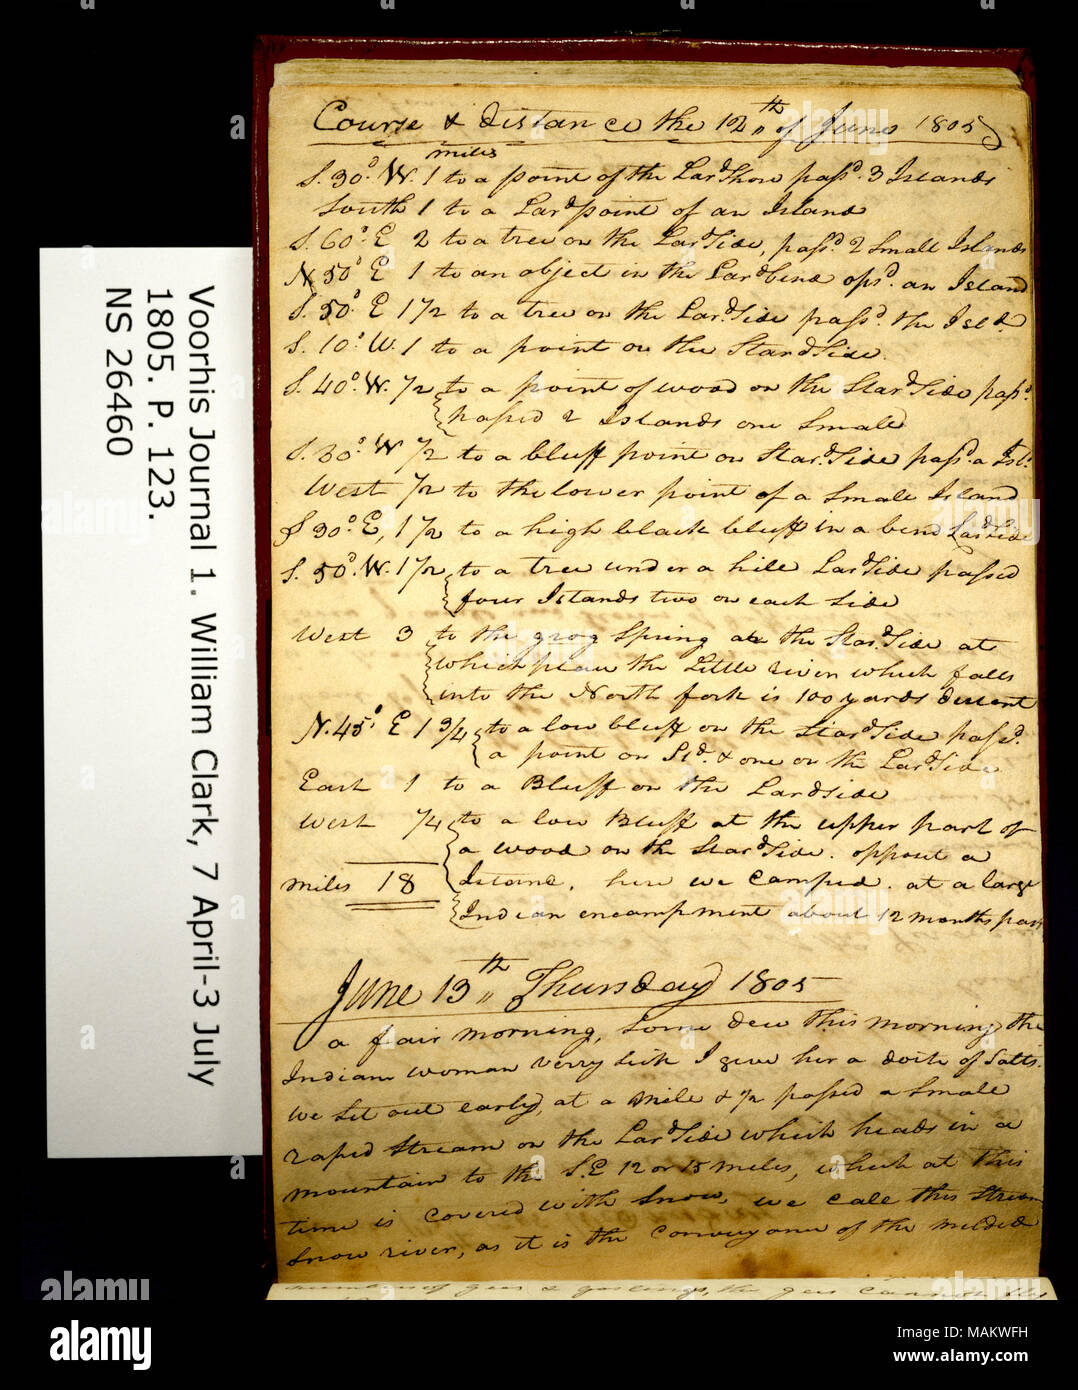 Course & distance the 12th of June 1805
miles
S. 30° W. 1 to a point of the Lard Shore passd. 3 Islands
South 1 to a Lard point of an Island
S. 60° E 2 to a tree on the Lard Side, passd. 2 Small Islands
N 50° E 1 to an object in the Lard bend opsd. an Island
S. 50° E 1 1/2 to a tree on the Lard. Side passd. the Isld.
S. 10° W. 1 to a point on the Stard Side.
S. 40° W. 1/2 to a point of wood on the Stard. Side passd.
passed 2 Islands one Small
S. 30° W 1/2 to a bluff point on Stard. Side passd. a Isld.
West 1/2 to the lower point of a Small Island
S 30° E, 1 1/2 to a high black bluff in a bend Lard Side
S. 50° W. 1 1/2 to a tree under a hill Lard. Side passed
four Islands two on each Side
West 3 to the grog Spring at the Stard. Side at
which place the Little river which falls
into the North fork is 100 yards distent
N. 45° E 1 3/4 to a low bluff on the Stard Side passed.
a point on Std. & one on the Lard Side
East 1 to a Bluff on the Lard side
West 1/4 to a low Bluff at the upper part of
a wood on the Stard. Side. opposit a
miles 18 Island, here we Camped. at a large
Indian encampment about 12 months past
June 13th Thursday 1805
a fair morning, Some dew this morning the
Indian woman verry Sick I gave her a doste of Salts.
We Set out early, at a mile & 1/2 passed a Small
rapid Stream on the Lard Side which heads in a
mountain to the S.E 12 or 15 miles, which at this
time is covered with Snow, we call this Stream
Snow river, as it is the conveyance of the melted
number of gees & goslings, the gees cannot
Voorhis Journal 1. William Clark, 7 April-3 July
1805. P. 123.
NS 26460
alamy
Image ID: MAKWFH
www.alamy.com